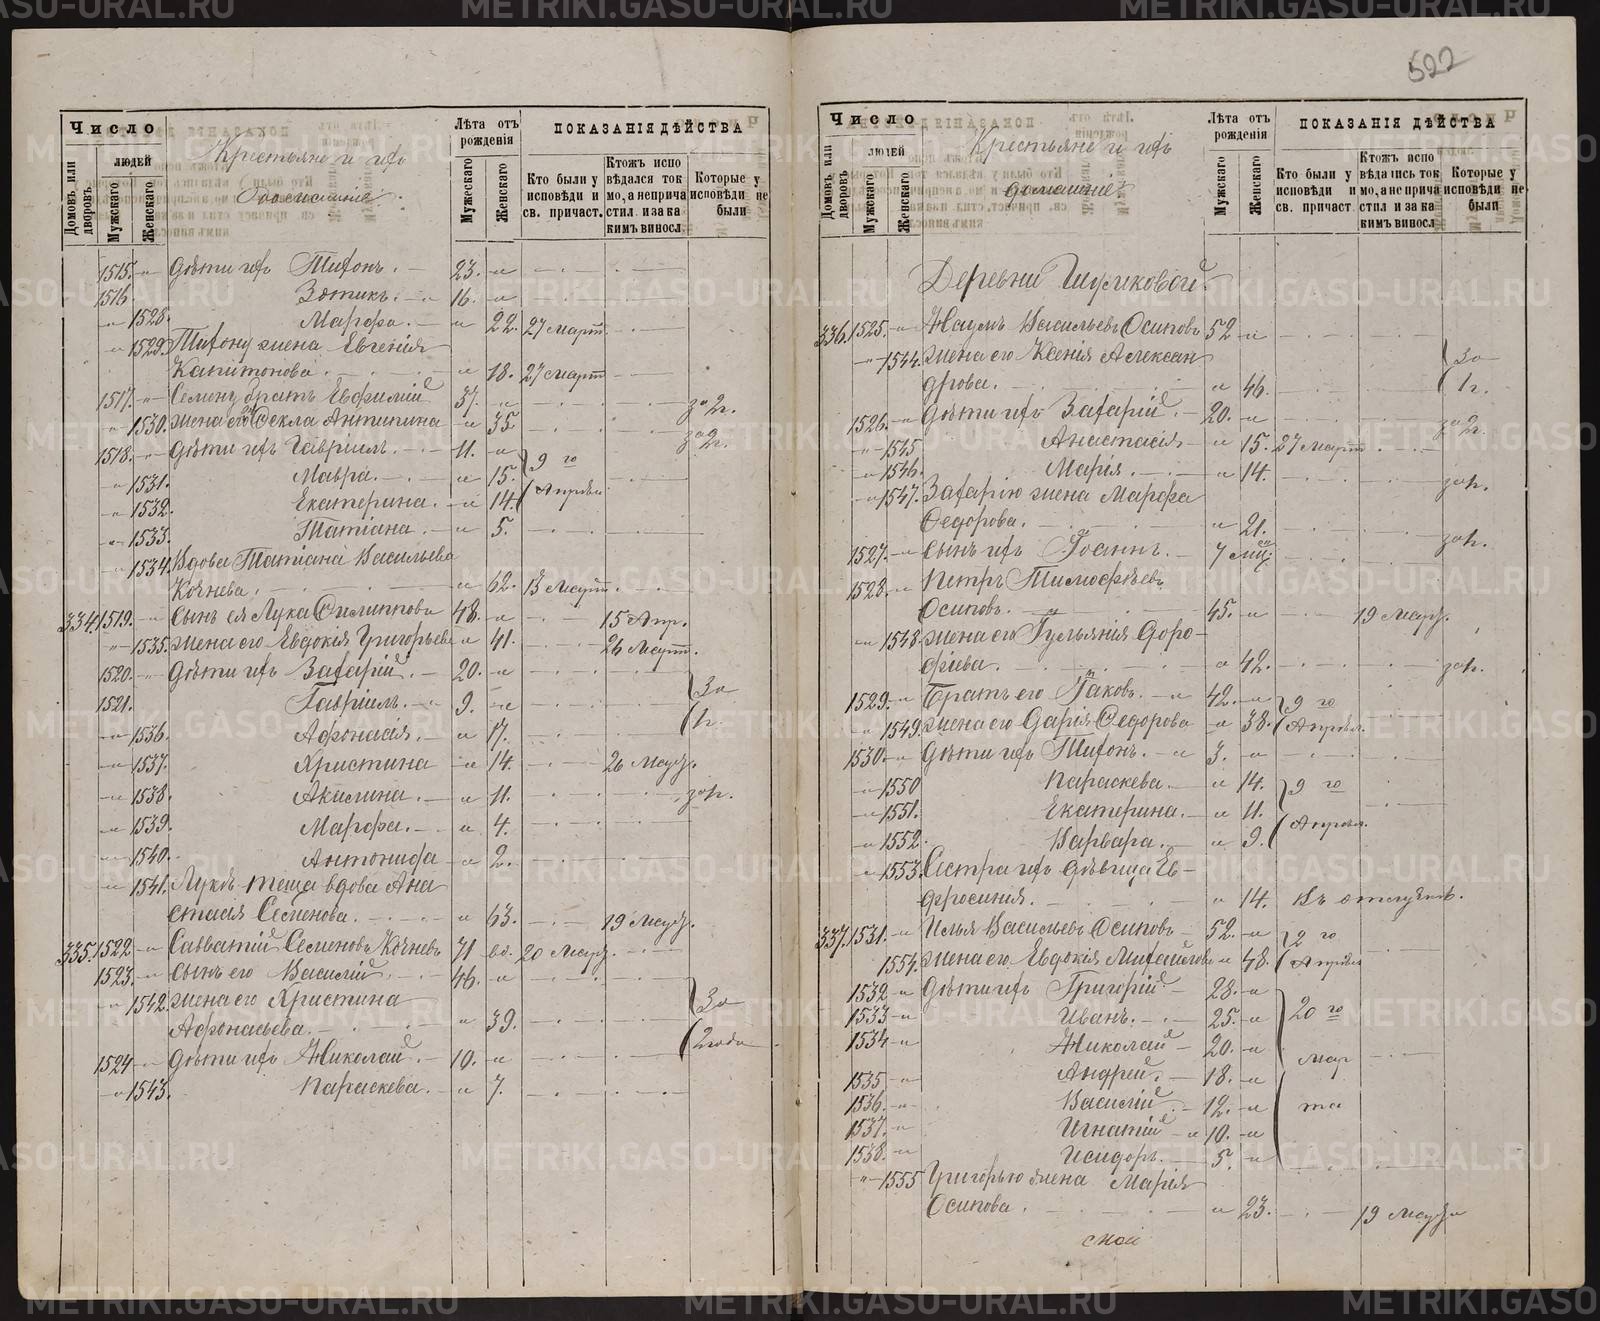 522
Число
людей
Домовъ или дворовъ.
Мужскаго
Женскаго
Крестьяне и ихъ
домашніе.
Лѣта отъ рожденія
Мужескаго
Женскаго
ПОКАЗАНІЯ ДѢЙСТВА
Кто были у исповѣди и св. причаст.
Ктожъ исповѣдался токмо, а не причастил и за какимъ виносл.
Которые у исповѣди не были
1515. -"- Дѣти ихъ Тихонъ. 23. -"-
1516. Зотикъ. 16. -"-
-"- 1528. Марфа. -"- 22. 27 Март.
-"- 1529. Тихону жена Евгенія
Капитонова. -"- 18. 27 Март.
1517. -"- Семену братъ Евфимій 37. -"- за 2 г.
-"- 1530. жена его Фекла Антипина -"- 35. за 2 г.
1518. -"- Дѣти ихъ Гавріилъ. 11. -"-
-"- 1531. Мавра. -"- 15. 9 го
-"- 1532. Екатерина. -"- 14. Апрѣля
-"- 1533. Татіана. -"- 5.
-"- 1534. Вдова Татіана Васильева
Кочнева. -"- 62. 13 Март.
334. 1519. -"- Сынъ ея Лука Филиппова 48. -"- 15 Апр.
-"- 1535. жена его Евдокія Григорьева -"- 41. 26 Март.
1520. -"- Дѣти ихъ Захарій. 20. -"-
1521. Гавріилъ. 9. -"- За
-"- 1536. Афонасія. -"- 17. 1 г.
-"- 1537. Христина -"- 14. 26 Мар.
-"- 1538. Акилина. -"- 11. за 1 г.
-"- 1539. Марфа. -"- 4.
-"- 1540. Антонида -"- 2.
-"- 1541. Лукѣ теща вдова Ана
стасія Семенова. -"- 63. 19 Мар.
335. 1522 -"- Савватій Семеновъ Кочневъ 71 вд. 20 Мар.
1523. -"- Сынъ его Василій. 46. -"-
-"- 1542. жена его Христина За
Афонасьева. -"- 39. 2 года
1524 -"- Дѣти ихъ Николай. 10. -"-
-"- 1543. Параскева. -"- 7.
Число
людей
Домовъ или дворовъ.
Мужскаго
Женскаго
Крестьяне и ихъ
домашніе
Лѣта отъ рожденія
Мужескаго
Женскаго
ПОКАЗАНІЯ ДѢЙСТВА
Кто были у исповѣди и св. причаст
Ктожъ исповѣдались токмо, а не причастил и за какимъ виносл
Которые у исповѣди не были
Деревни Шуриковой
336. 1525. -"- Наумъ Васильевъ Осиповъ 52 -"-
-"- 1544. жена его Ксенія Алексан За
дрова. -"- 46. 1 г.
1526. -"- Дѣти ихъ Захарій. 20. -"- за 2 г.
-"- 1545 Анастасія -"- 15. 27 Март
-"- 1546. Марія. -"- 14.
-"- 1547. Захарію жена Марфа за 1 г.
Федорова. -"- 21.
1527. -"- Сынъ ихъ Іоаннъ. 7 мѣц. за 1 г.
1528. -"- Петръ Тимофѣевъ
Осиповъ. 45. -"- 19 Мар.
-"- 1548. жена его Іульянія Доро-
фѣева. -"- 42. за 1 г.
1529. -"- Братъ его Іаковъ. 42. -"- 9 го
-"- 1549. жена его Дарія Федорова -"- 38. Апрѣля.
1530. -"- Дѣти ихъ Тихонъ. 3. -"-
-"- 1550 Параскева. -"- 14. 9 го
-"- 1551. Екатерина. -"- 11. Апрѣля.
-"- 1552. Варвара. -"- 9.
-"- 1553. Сестра ихъ дѣвица Ев-
фросинія. -"- 14. Въ отлучкѣ.
337. 1531. -"- Илья Васильевъ Осиповъ 52. -"- 2 го
1554. жена его Евдокія Михайлова -"- 48. Апрѣля
1532 -"- Дѣти ихъ Григорій 28. -"-
1533 -"- Иванъ. 25. -"- 20 го
1534 -"- Николай 20. -"- мар
1535 -"- Андрей. 18. -"-
1536. -"- Василій 12. -"- та
1537. -"- Игнатій 10. -"-
1538. -"- Исидоръ. 5. -"-
-"- 1555 Григорью жена Марія
Осипова. -"- 23. 19 Мар